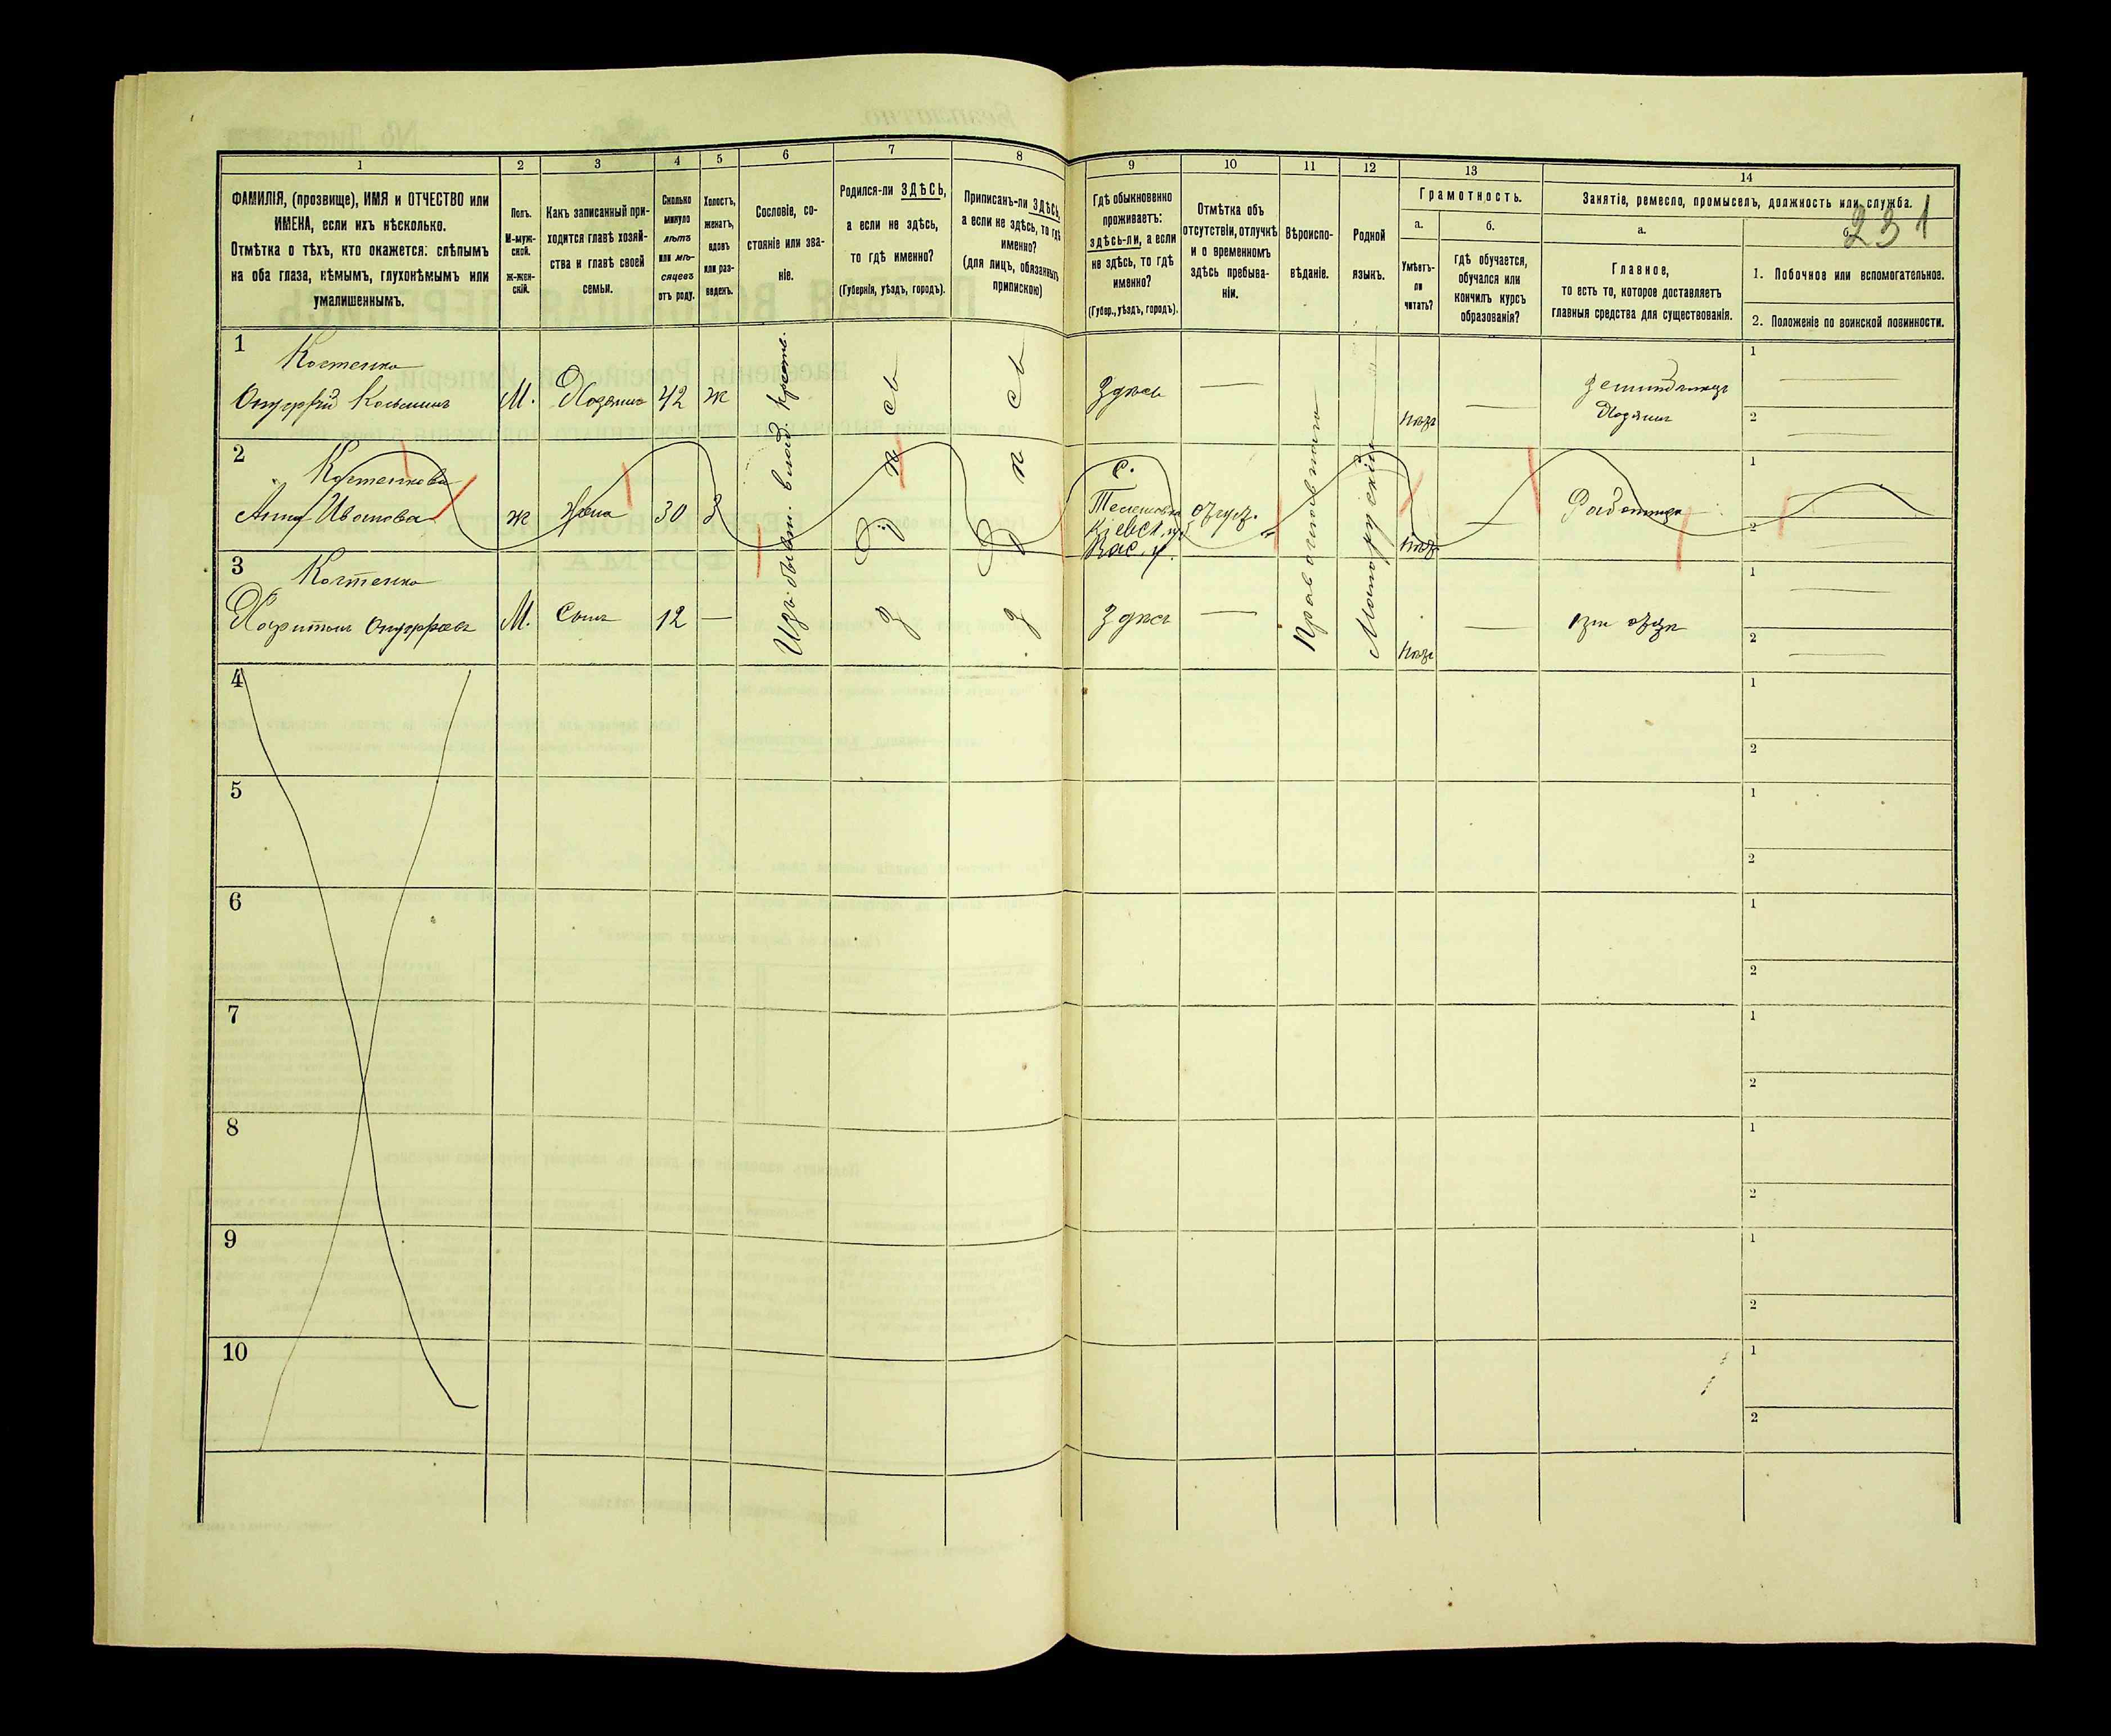 231
1
2
3
4
5
6
7
8
9
10
11
12
13
14
ФАМИЛІЯ, (прозвище), ИМЯ и ОТЧЕСТВО или
ИМЕНА, если ихъ нѣсколько.
Отмѣтка о тѣхъ, кто окажется: слѣпымъ
на оба глаза, нѣмымъ, глухонѣмымъ или
умалишеннымъ.
Полъ.
М-муж-
ской.
Ж-жен-
скій.
Какъ записанный при-
ходится главѣ хозяй-
ства и главѣ своей
семьи.
Сколько
минуло
лѣтъ
или мѣ-
сяцевъ
отъ роду.
Холостъ,
женатъ,
вдовъ
или раз-
веденъ.
Сословіе, со-
стояніе или зва-
ніе.
Родился-ли ЗДѢСЬ,
а если не здѣсь,
то гдѣ именно?
(Губернія, уѣздъ, городъ).
Приписанъ-ли ЗДѢСЬ,
а если не здѣсь, то гдѣ
именно?
(для лицъ, обязанныхъ
припискою)
Гдѣ обыкновенно
проживаетъ:
здѣсь-ли, а если
не здѣсь, то гдѣ
именно?
(Губер., уѣздъ, городъ).
Отмѣтка объ
отсутствіи, отлучкѣ
и о временномъ
здѣсь пребыва-
ніи.
Вѣроиспо-
вѣданіе.
Родной
языкъ.
Грамотность.
а.
Умѣетъ-
ли
читать?
б.
гдѣ обучается,
обучался или
кончилъ курсъ
образованія?
Занятіе, ремесло, промыселъ, должность или служба.
а.
Главное,
то есть то, которое доставляетъ
главныя средства для существованія.
б.
1. Побочное или вспомогательное.
2. Положеніе по воинской повинности.
1
Костенко
М. Хозяинъ 42 ж
Здѣсь
нѣтъ
Хозяинъ
1
2
2
Костенкова
Анна Иванова ж Жена 30 З
с.
Кіевск. г.
Вас. у.
нѣтъ
Работница
1
2
3
Костенко
Харитонъ М. Сынъ 12 —
Здѣсь
нѣтъ
при отцѣ
1
2
Изъ бывш. влад. крест.
Здѣсь
Здѣсь
Православнаго
Малорускій
4
1
2
5
1
2
6
1
2
7
1
2
8
1
2
9
1
2
10
1
2